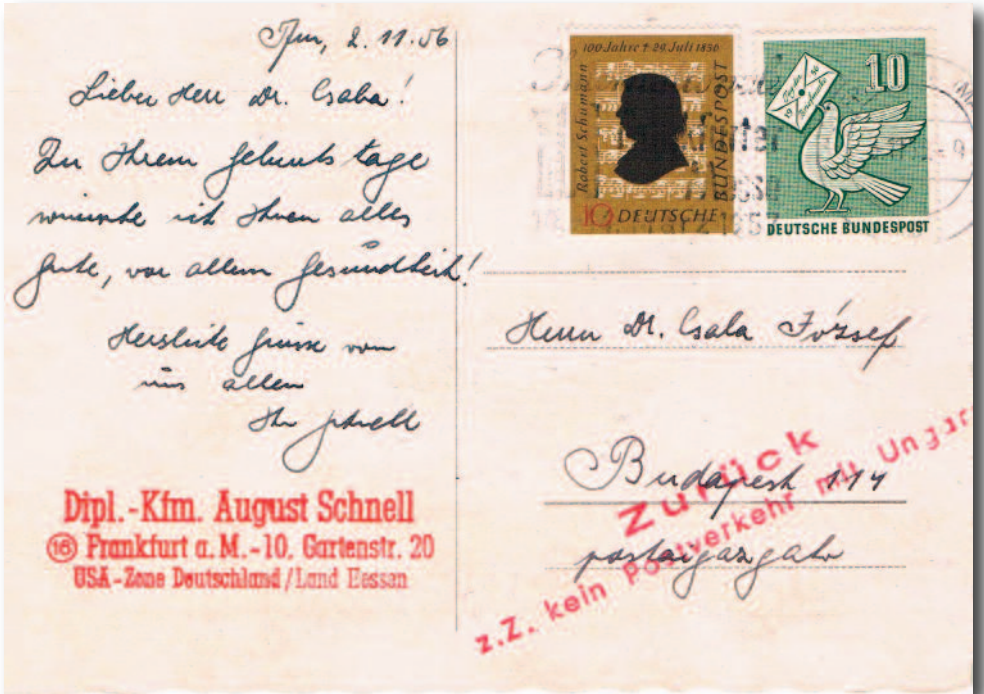 Ffm, 2.11.56
Lieber Herr Dr. Csaba!
Zu Ihrem Geburtstage
wünsche ich Ihnen alles
Gute, vor allem Gesundheit!
Herzliche Grüsse von
uns allen
Ihr Schnell
Dipl.-Kfm. August Schnell
(16) Frankfurt a. M.-10, Gartenstr. 20
USA-Zone Deutschland/Land Hessen
100 Jahre † 29. Juli 1856
Robert Schumann
10 DEUTSCHE
BUNDESPOST
10
Tag der
Briefmarke
19 56
DEUTSCHE BUNDESPOST
Herrn Dr. Csaba József
Budapest 114
postaigazgató
Zurück
z.Z. kein Postverkehr mit Ungar